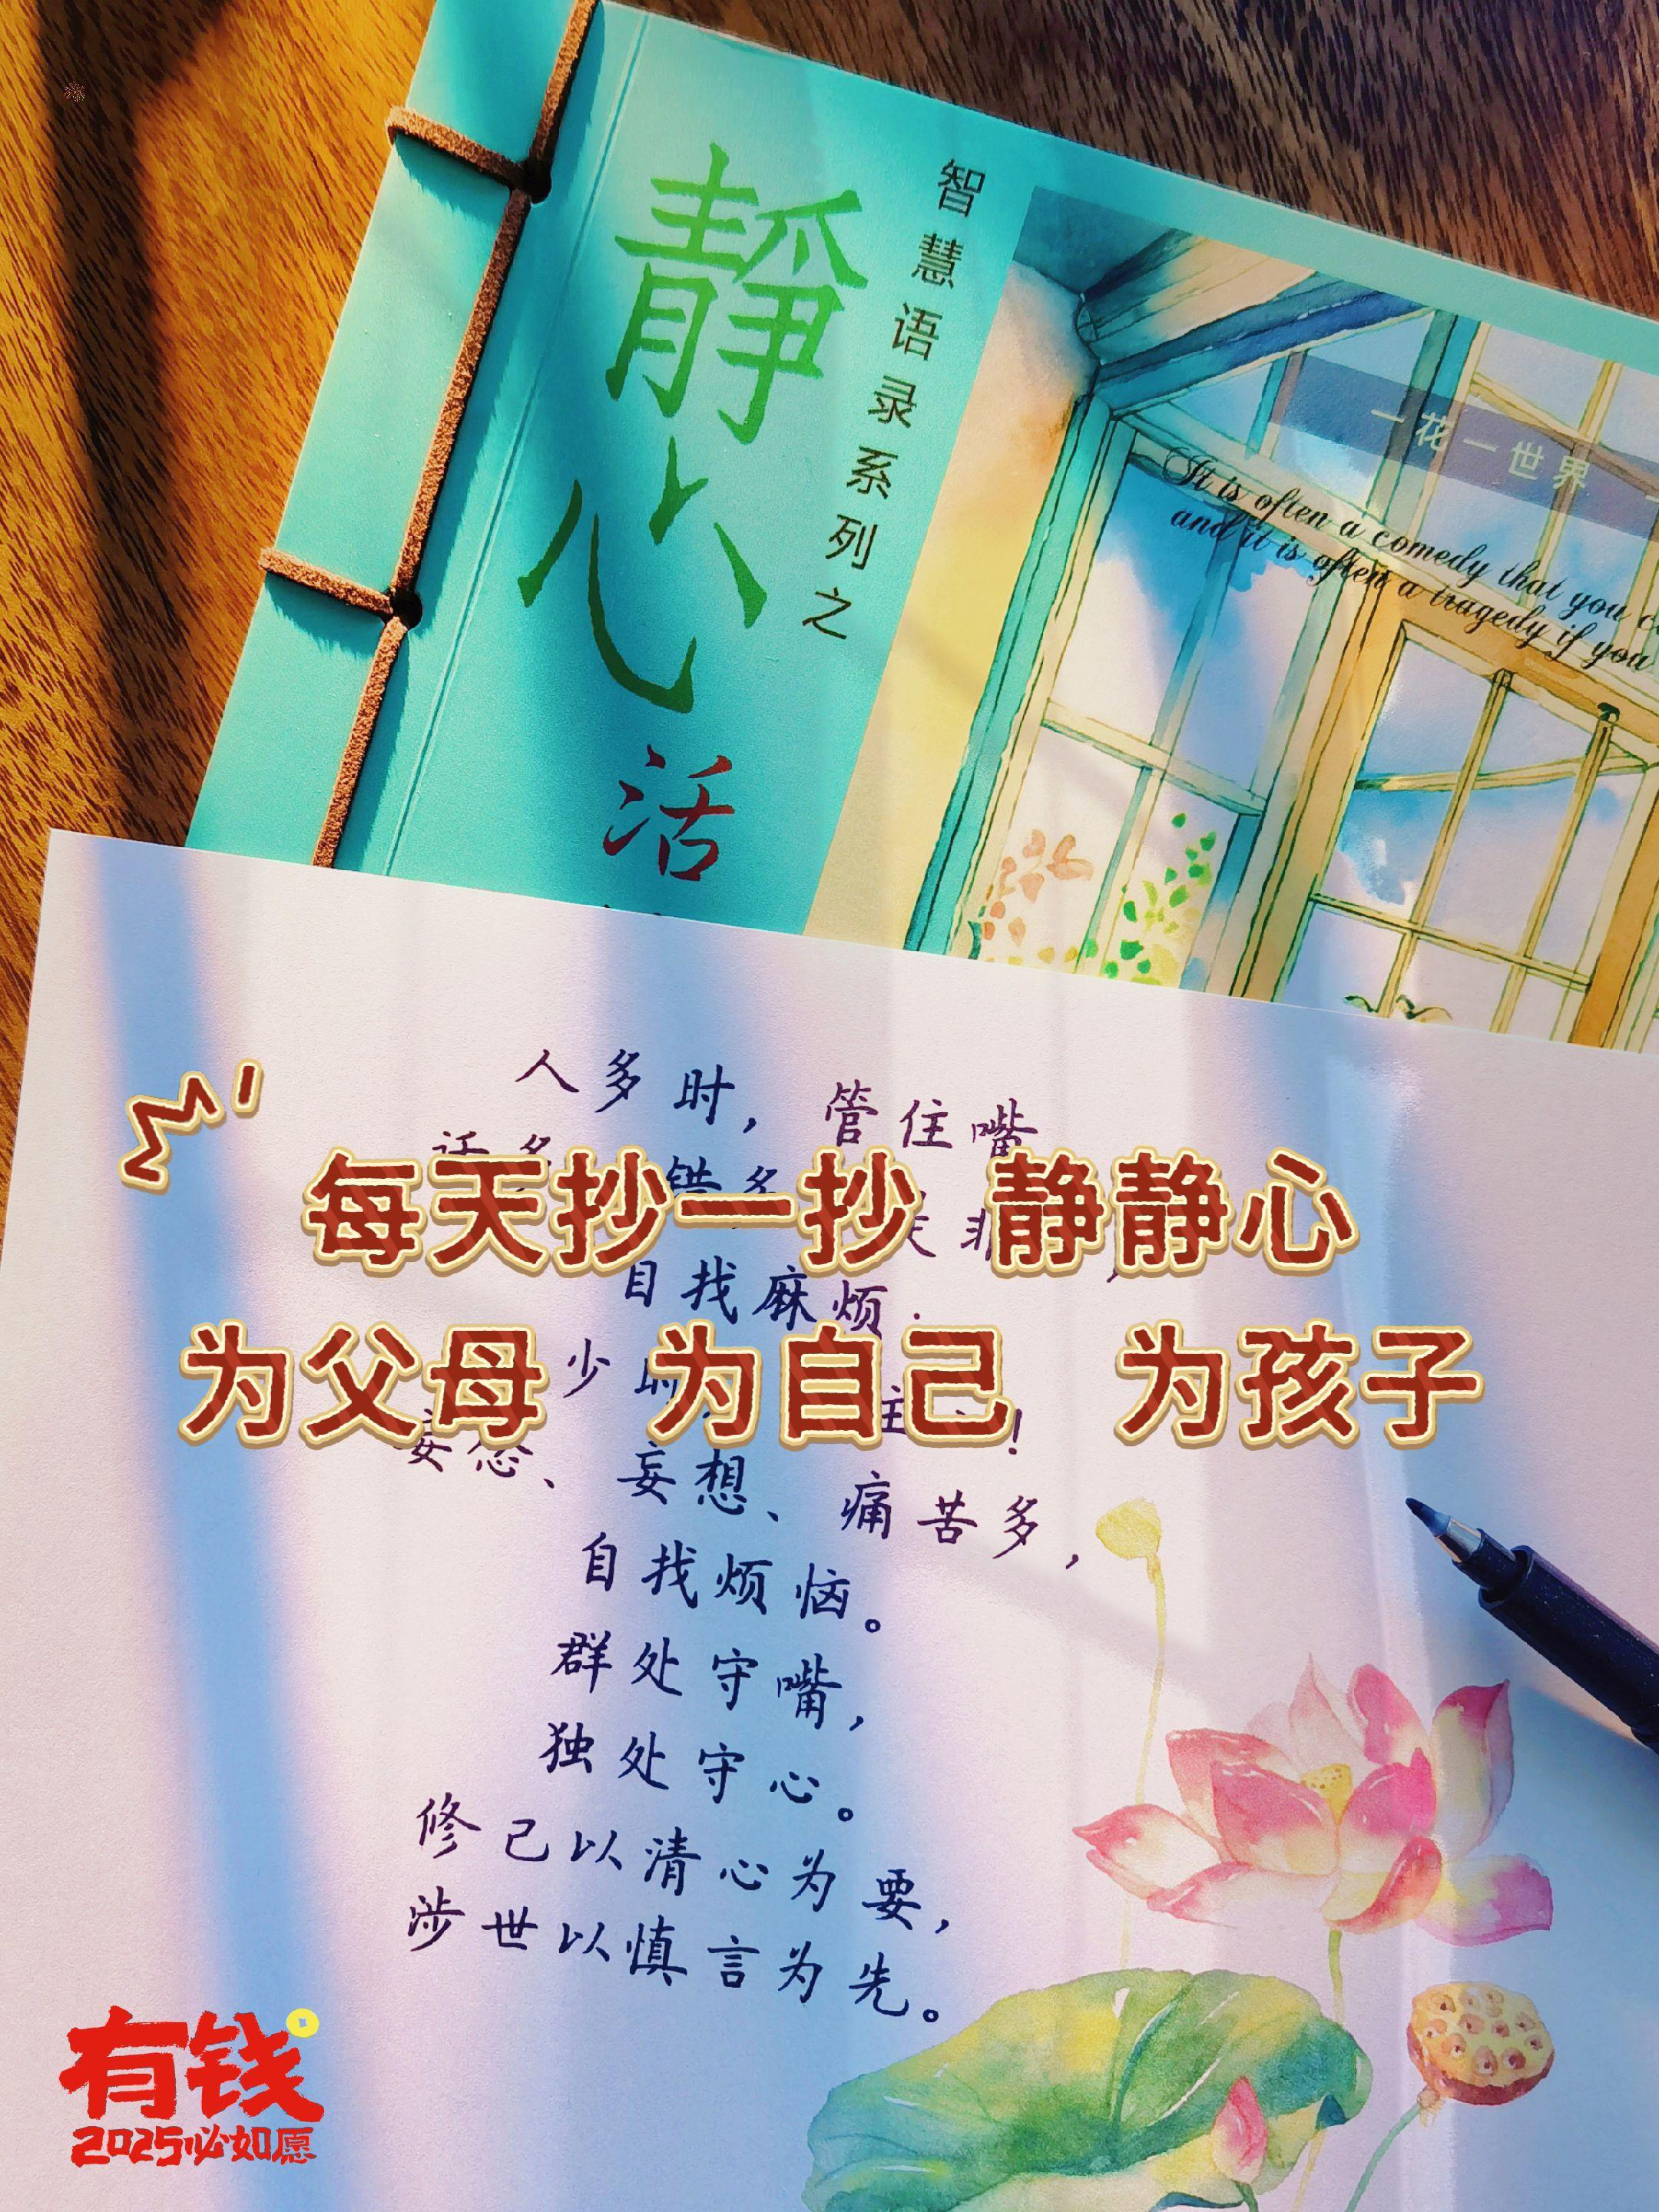 智慧语录系列之
静心
活
一花一世界
It is often a comedy that you
and it is often a tragedy if you
人多时，管住嘴
话多 错多 非
每天抄一抄 静静心
自找麻烦.
为父母 为自己 为孩子
少时 住 !
妄念、妄想、痛苦多，
自找烦恼。
群处守嘴，
独处守心。
修己以清心为要，
涉世以慎言为先。
有钱
2025必如愿